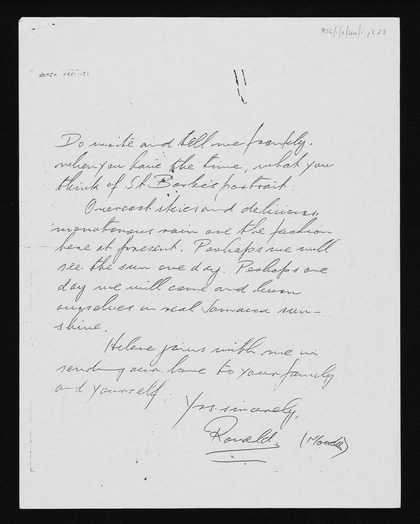 Do write and tell me frankly.
when you have the time, what you
think of St Barbe's portrait.
Overcast skies and delicious,
monotonous rain are the fashion
here at present. Perhaps we will
see the sun one day. Perhaps one
day we will come and burn
ourselves in real Jamaica sun-
shine.
Helene joins with me in
sending our love to your family
and yourself.
Yrs sincerely,
Ronald. (Moody)